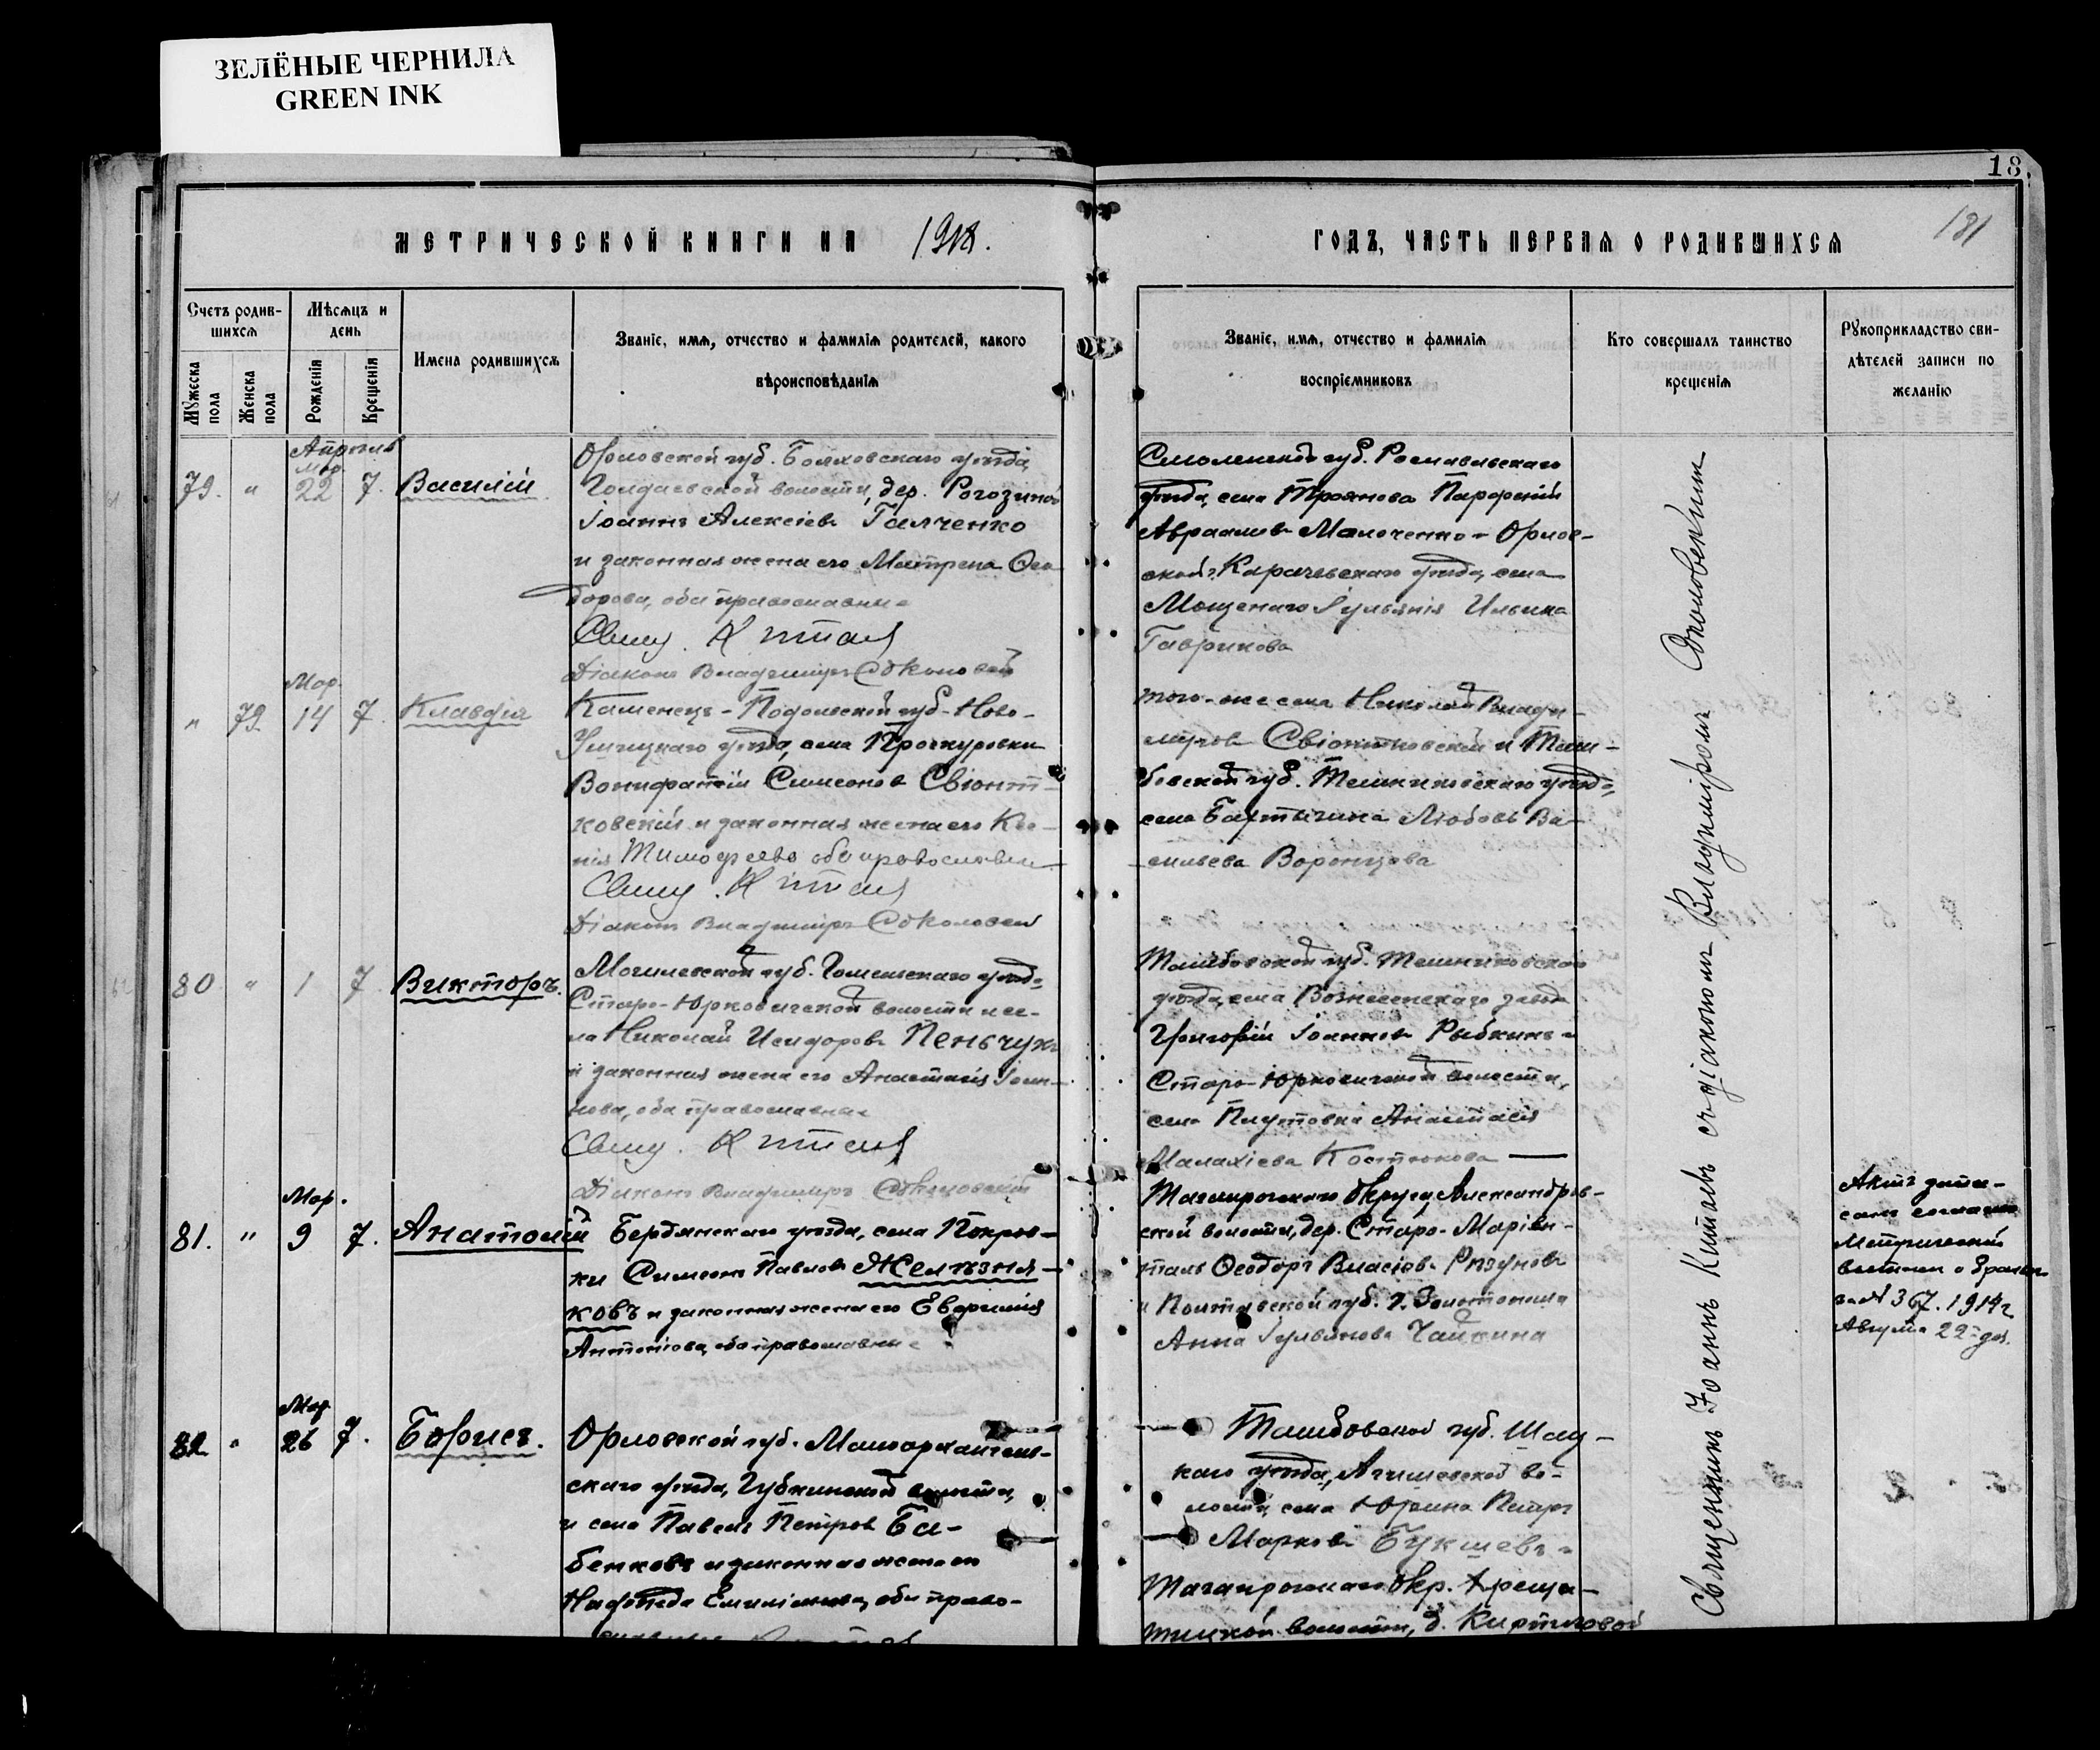 ЗЕЛЁНЫЕ ЧЕРНИЛА
GREEN INK
18
МЕТРИЧЕСКОЙ КНИГИ НА 1918.
ГОДЪ, ЧАСТЬ ПЕРВАЯ О РОДИВШИХСЯ
181
Счетъ родив-
шихся
Мѣсяцъ и
день
Мужеска
пола
Женска
пола
Рожденія
Крещенія
Имена родившихся
Званіе, имя, отчество и фамилія родителей, какого
вѣроисповѣданія
Званіе, имя, отчество и фамилія
воспріемниковъ
Кто совершалъ таинство
крещенія
Рукоприкладство сви-
дѣтелей записи по
желанію
Апрѣль
Мар.
79. " 22 7. Василій
Орловской губ. Болховскаго уѣзда,
волости, дер.
Іоаннъ Алексіевъ Галченко
и законная жена его Матрена Ѳео-
дорова, оба православные
Свящ. Китаевъ
Діаконъ Владиміръ Соколовскій
Смоленской губ. Рославльскаго
уѣзда, села Троянова Парфеній
Авраамовъ Малоченко и Орлов-
ской г. Карачевскаго уѣзда, села
Мощенаго Іуліанія Ильина
Гаврикова
Мар.
" 72 14 7. Клавдія
Каменецъ-Подольской губ. Ново-
Ушицкаго уѣзда, села Проскуровки
Вонифатій Симеоновъ Свіонт-
ковскій и законная жена его Ксе-
нія Тимофеева оба православные
Свящ. Китаевъ
Діаконъ Владиміръ Соколовскій
того-же села Николай Влади-
міровъ Свіонтковскій и Там-
бовской губ. Темниковскаго уѣзда,
села Любовь Ва-
сильева Воронцова
80 " 1 7. Викторъ.
Могилевской губ. Гомельскаго уѣзда,
Старо-Юрковичской волости и се-
ла Николай Исидоровъ Пеньчукъ
и законная жена его Анастасія Іоан-
нова, оба православные
Свящ. Китаевъ
Діаконъ Владиміръ Соколовскій
Тамбовской губ. Темниковскаго
уѣзда, села Вознесенскаго завода
Григорій Іоанновъ Рыбкинъ и
Старо-Юрковичской волости,
села Плутовка Анастасія
Малахіева Костюкова
Мар.
81. " 9 7. Анатолій
Бердянскаго уѣзда, села Покров-
ки Симеонъ Павловъ Желѣзня-
ковъ и законная жена его Евфимія
Антоніова, оба православные
Таганрогскаго Округа, Александров-
ской волости, дер. Старо-Маріен-
таль Ѳеодоръ Власіевъ Рѣзуновъ
и Полтавской губ. г. Золотоноша
Анна Іуліанова Чайкина
Актъ запи-
санъ согласно
Метрической
выписки о
за № 367. 1914 г.
Августа 22 дня.
Мар.
82 " 26 7. Борисъ.
Орловской губ. Малоархангель-
скаго уѣзда, Губкинской волости,
и села Павелъ Петровъ Ба-
бенковъ и законная жена его
Надежда Емиліанова, оба право-
славные
Тамбовской губ. Шац-
каго уѣзда, Агишевской во-
лости, села Юрина Петръ
Марковъ Букшевъ и
Таганрогскаго Окр.
волости, д.
Священникъ Іоаннъ Китаевъ съ діакономъ Владиміромъ Соколовскимъ